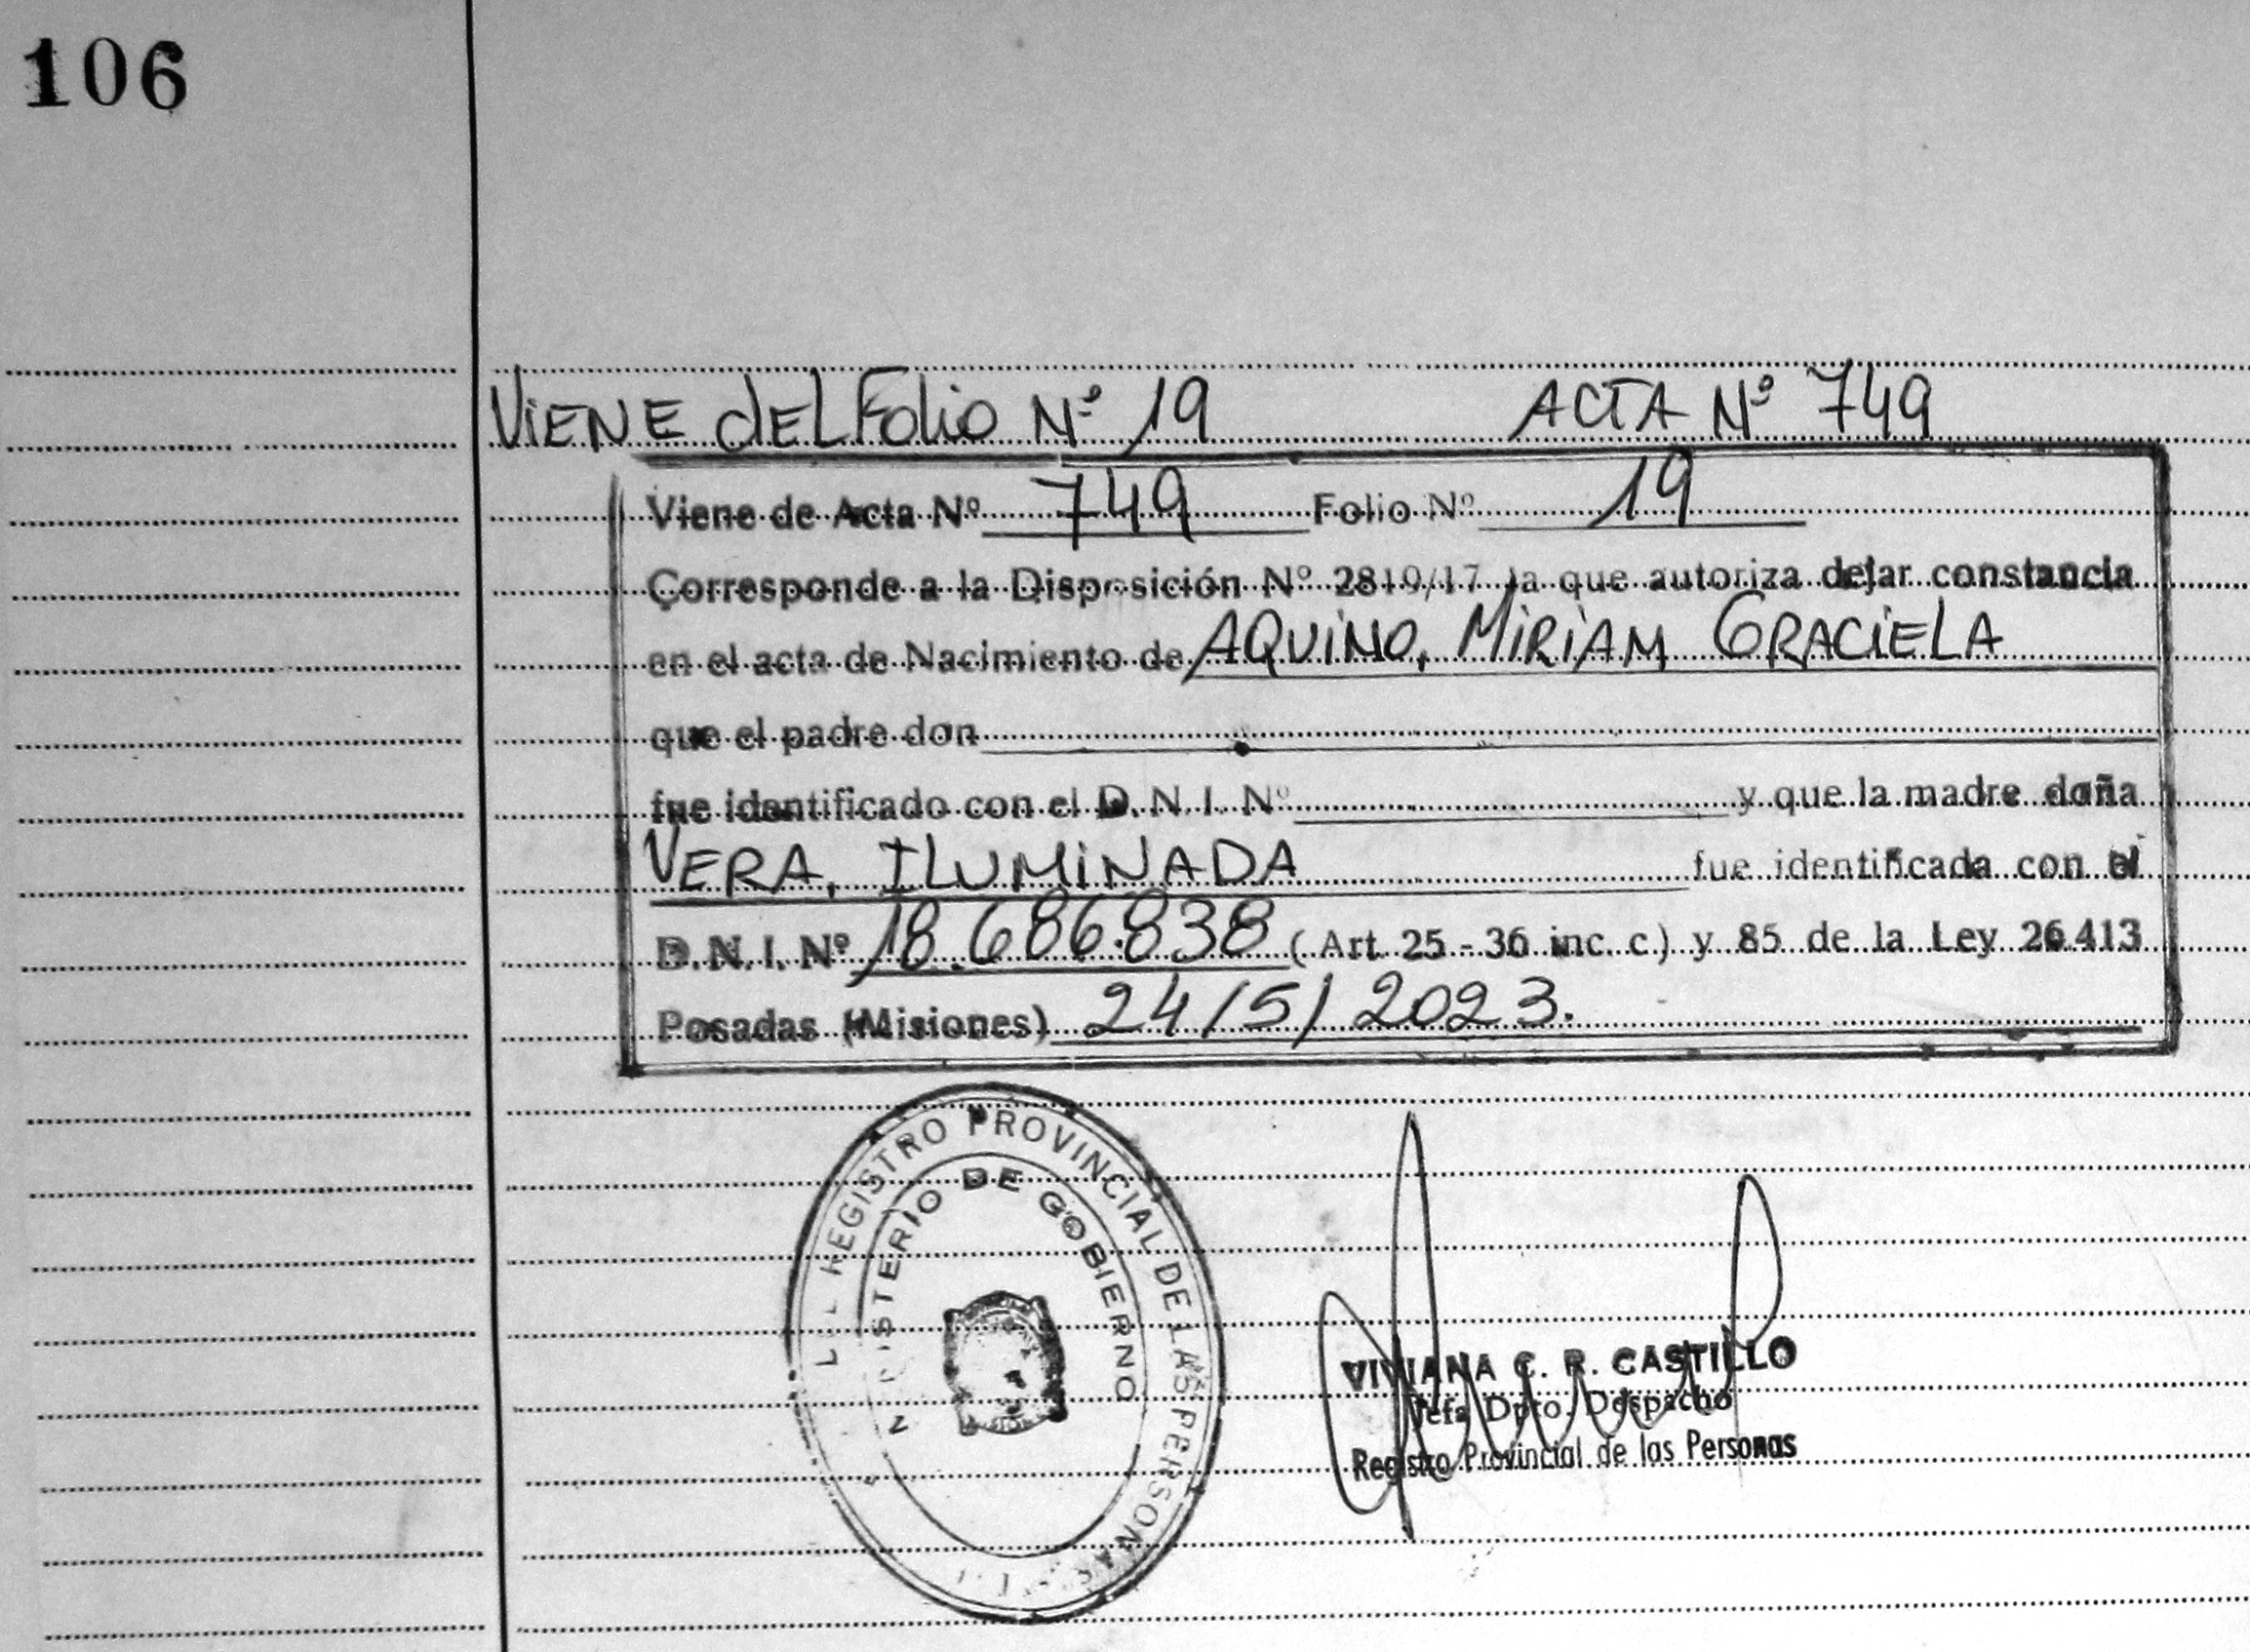 106
VIENE dEL FOLIO Nº 19 ACTA Nº 749
Viene de Acta Nº 749 Folio Nº 19
Corresponde a la Disposición Nº 2810/17 la que autoriza dejar constancia
en el acta de Nacimiento de AQUINO, MIRIAM GRACIELA
que el padre don
fue identificado con el D.N.I. Nº y que la madre doña
VERA, ILUMINADA fue identificada con el
D.N.I. Nº 18.686.838 (Art. 25 - 36 inc. c.) y 85 de la Ley 26.413
Posadas (Misiones) 24/5/2023.
REGISTRO PROVINCIAL DE LAS PERSONAS
DE GOBIERNO
VIVIANA C. R. CASTILLO
Jefa Dpto. Despacho
Registro Provincial de las Personas